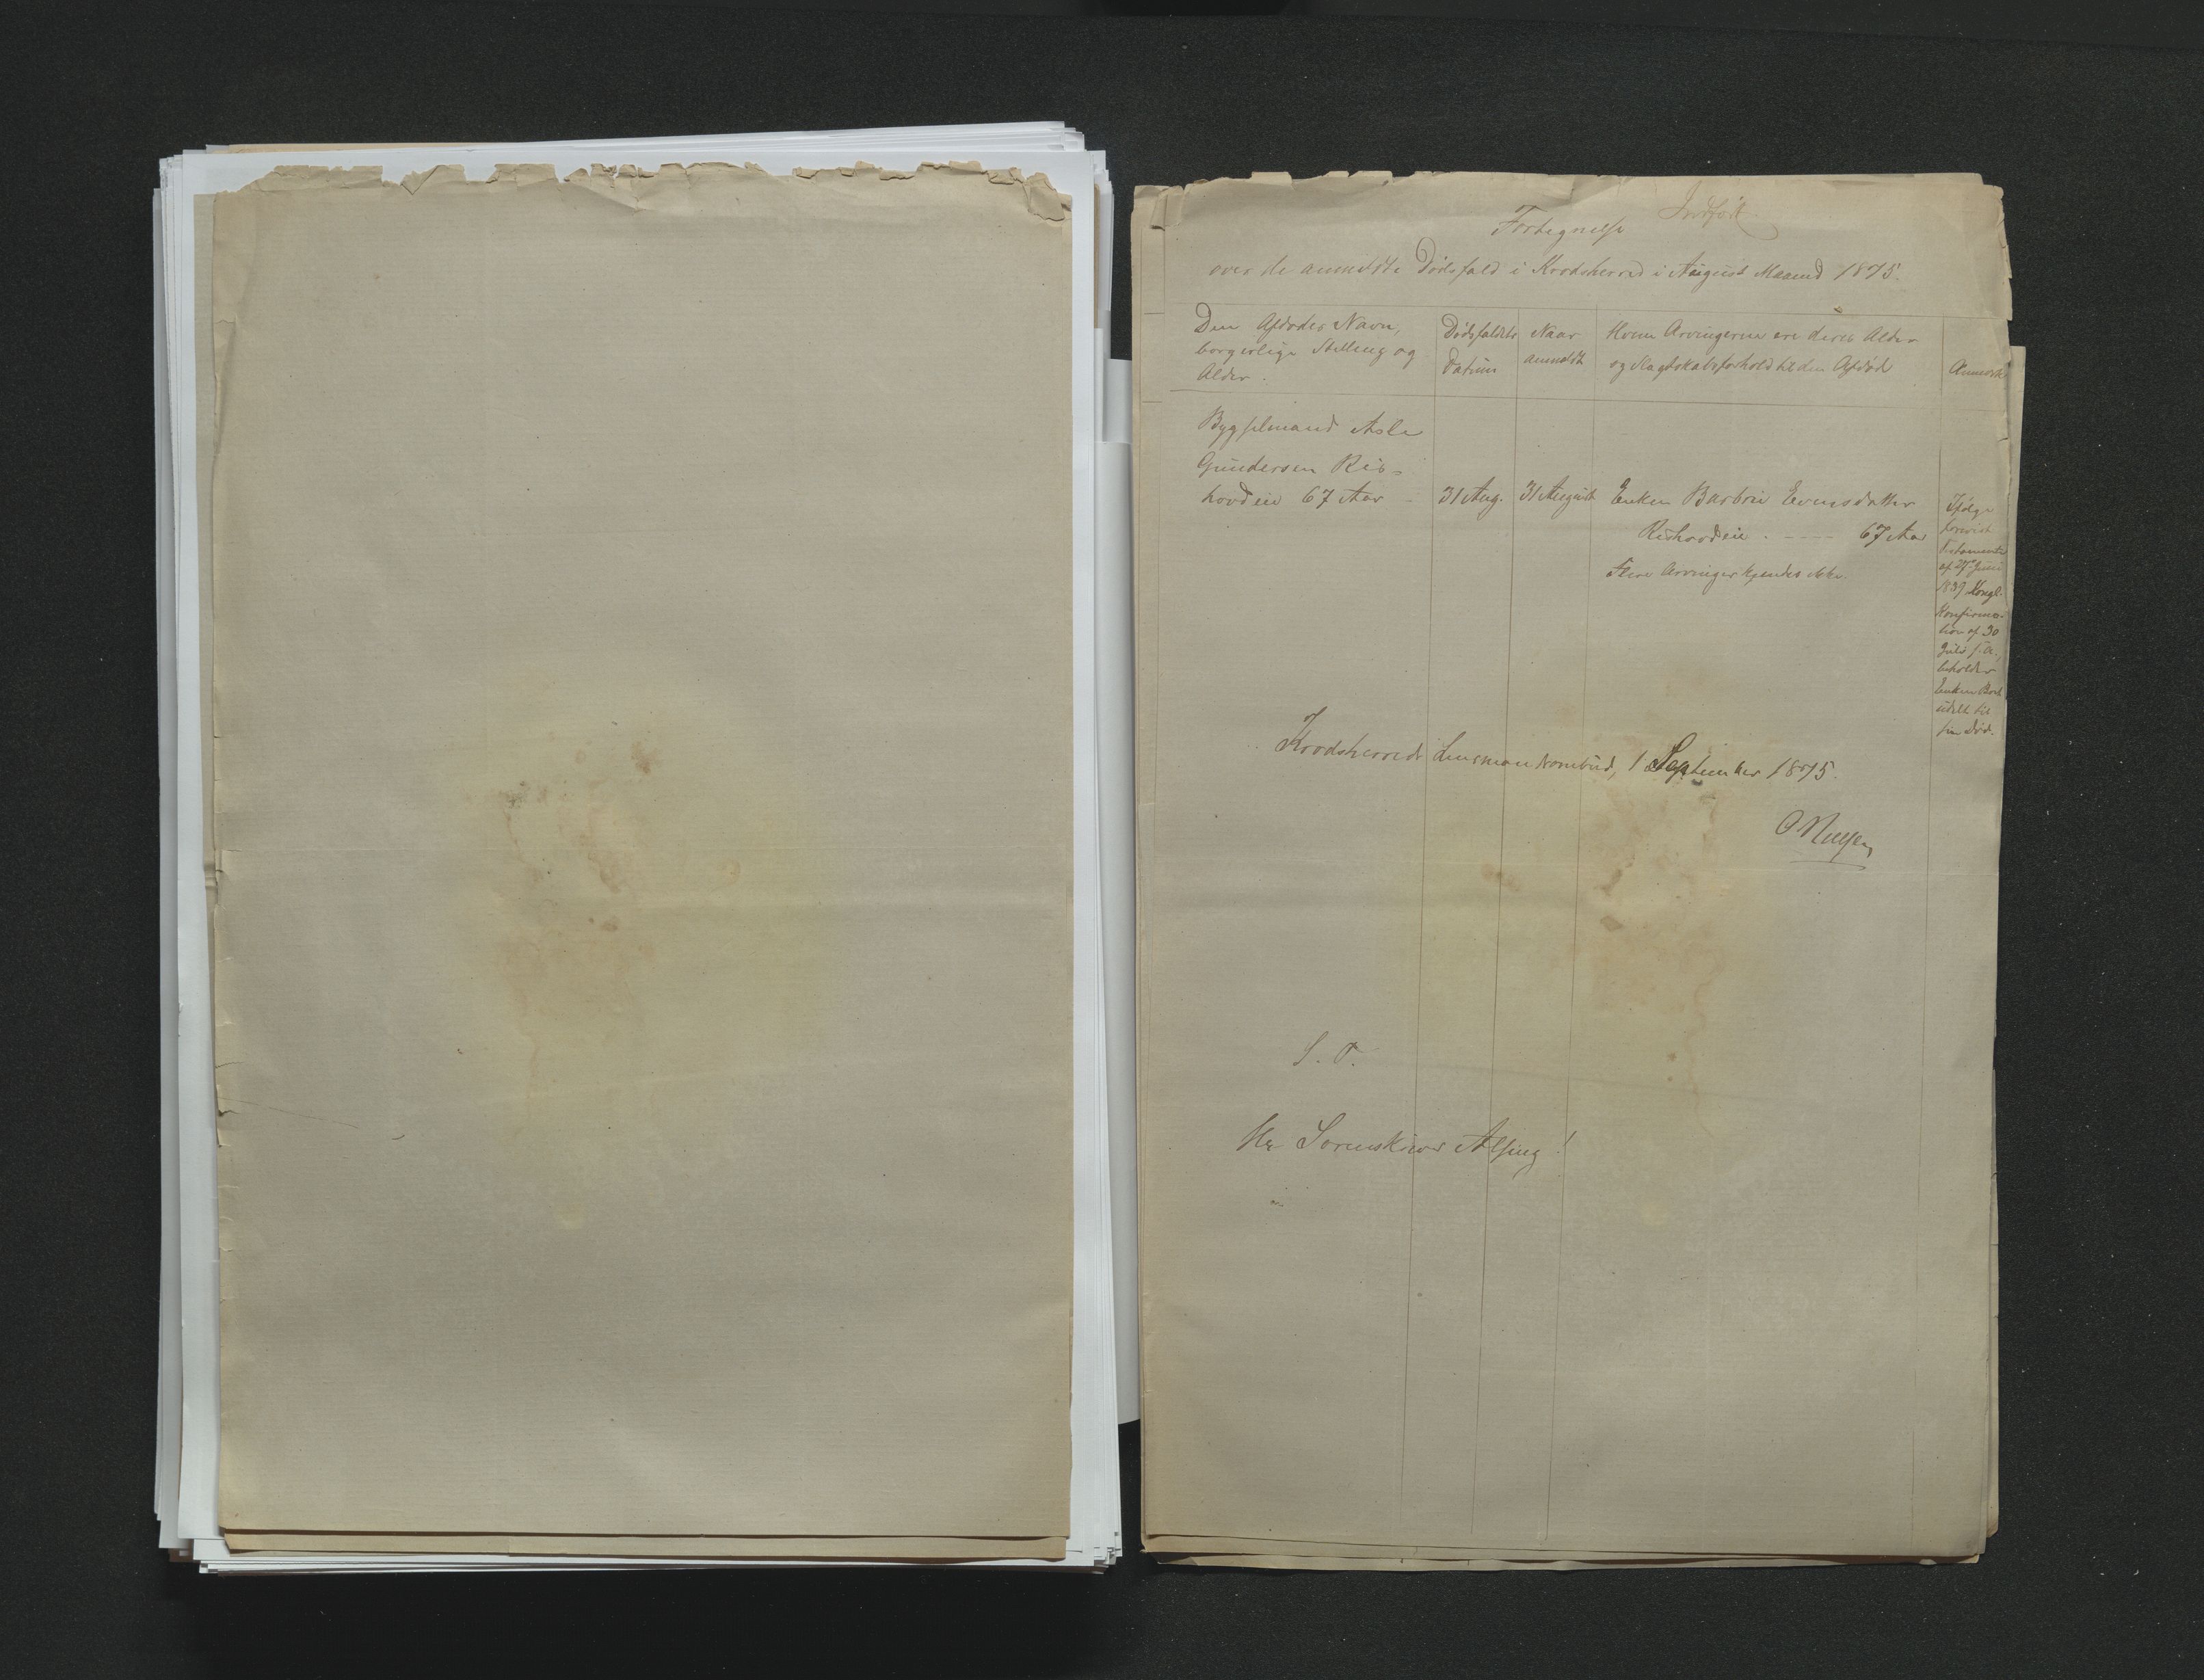 Indført
Fortegnelse
over de anmeldte Dødsfald i Krødsherred i August Maaned 1875.
Den Afdødes Navn,
borgerlige Stilling og
Alder.
Dødsfaldets
Datum
Naar
anmeldt
Hvem Arvingerne ere deres Alder
og Slagtskabsforhold til den Afdød
Anmærk
Bygselmand Asle
Gundersen Ris-
hovdeie 67 Aar
31 Aug.
31 August
Enken Barbro Evensdatter
Rishovdeie . - - - - 67 Aar
Flere Arvinger kjendes ikke.
Ifølge
forevist
Testamente
af 27 Juni
1839 Kongl.
Konfirma-
tion af 30
Juli s. A.,
beholder
Enken Boet
udelt til
sin Død.
Krødsherreds Lensmandsombud, 1 September 1875.
O Nielsen
S. T.
Hr Sorenskriver Alsing!